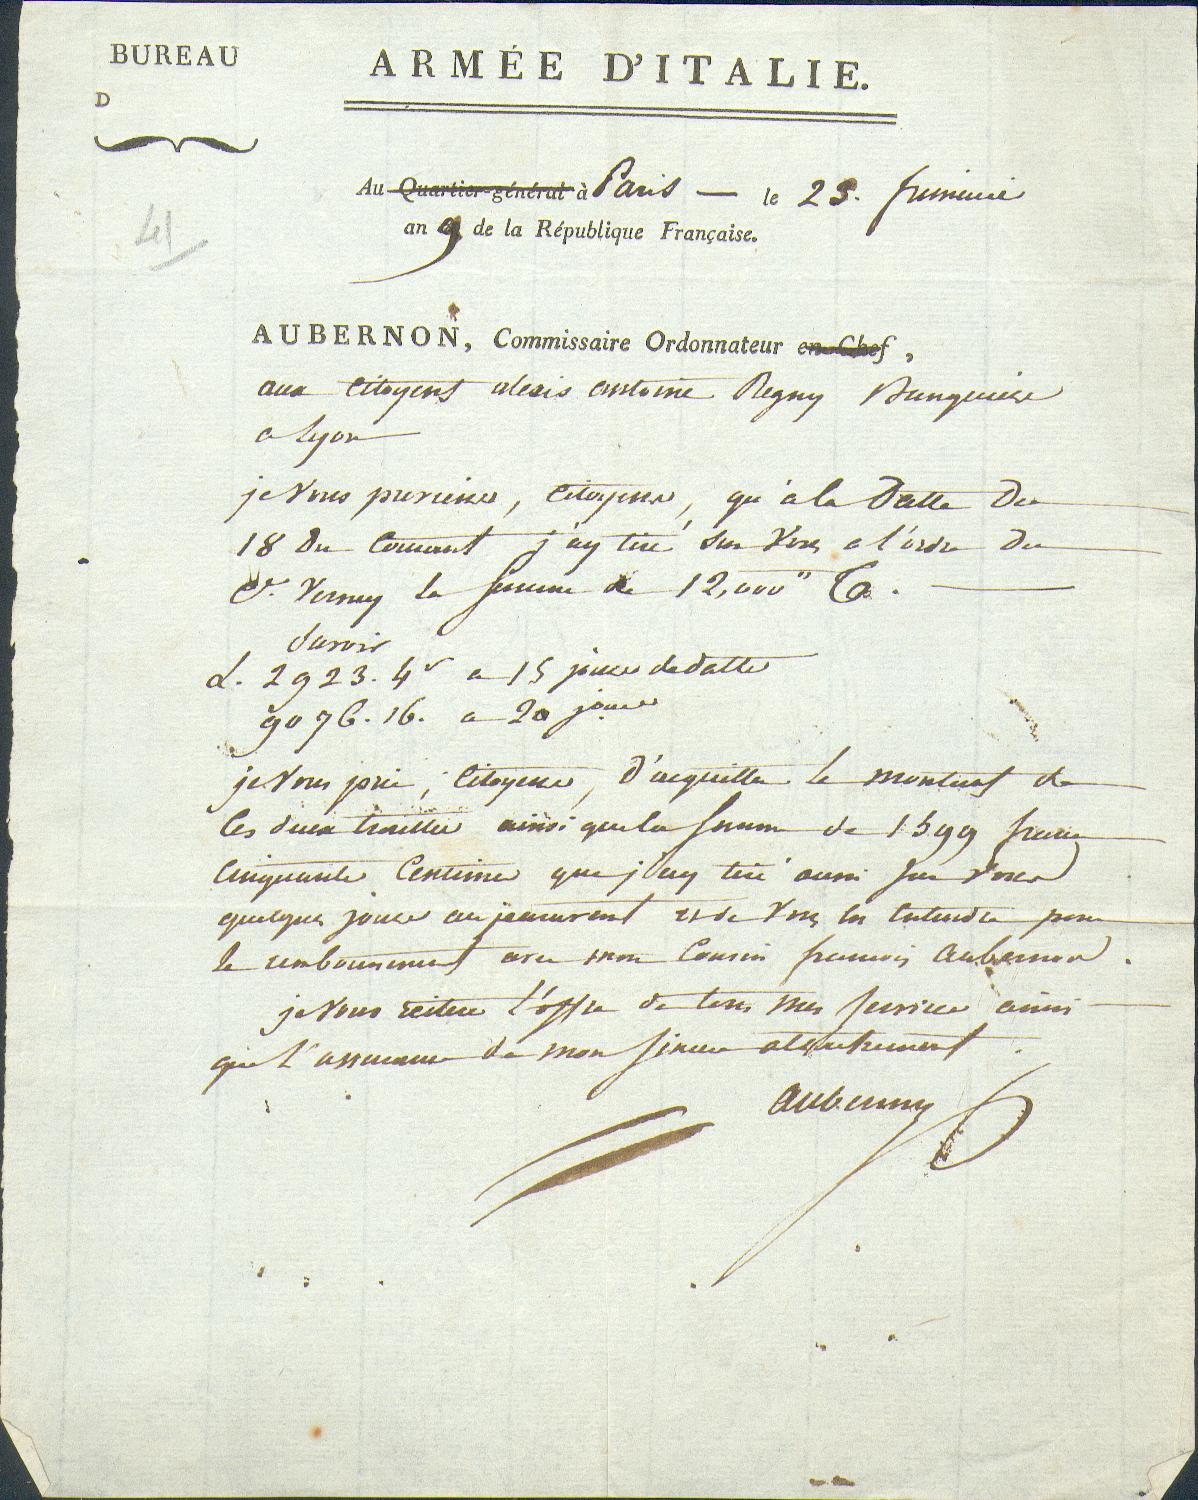 BUREAU
D
ARMÉE D'ITALIE.
Au Quartier-général à Paris — le 23. frimaire
an 9 de la République Française.
41
AUBERNON, Commissaire Ordonnateur en Chef,
aux Citoyens alexis antoine Regny Banquiers
a Lyon
je Vous previens, Citoyens, qu'a la Datte Du
18 Du Courant j'ay tiré Sur Vous a l'ordre Du
Cn. Verney la Somme de 12,000"
Savoir
L. 2923. 4s a 15 jours de datte
9076. 16. a 20 jours
je Vous prie, Citoyens, d'acquitter le montant de
Ces deux traittes ainsi que la somme de 1599 francs
Cinquante Centimes que j'ay tiré aussi sur Vous
quelques jours auparavant et de Vous en entendre pour
le remboursement avec mon Cousin francois aubernon.
je Vous reitere l'offre de tous mes services ainsi
que l'assurance de mon sincere attachement.
Aubernon